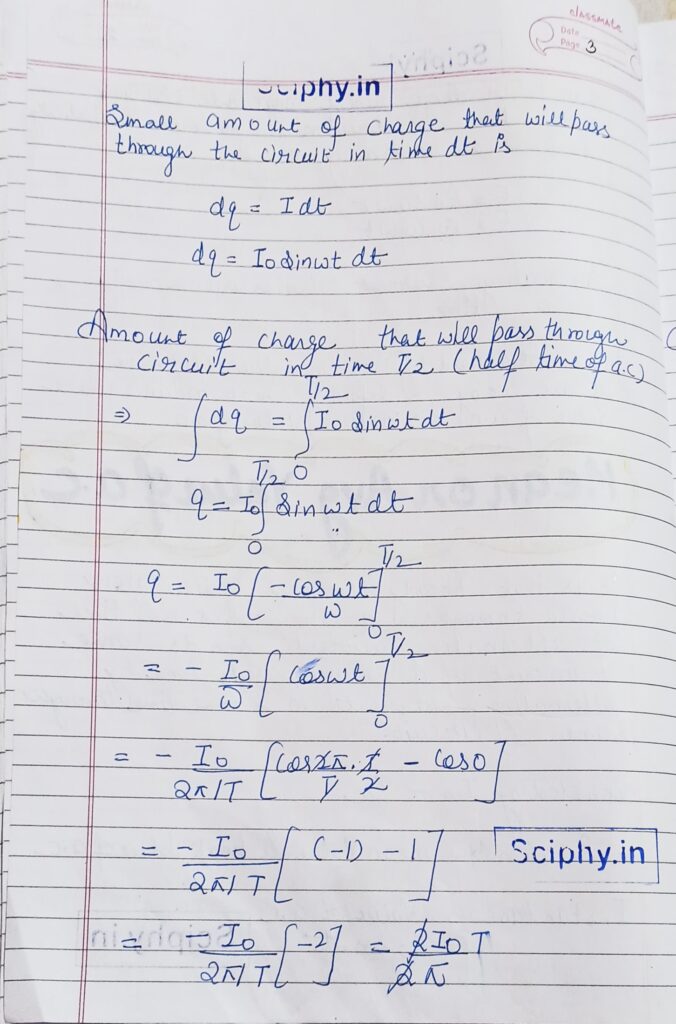 classmate
Date
Page 3
Sciphy.in
Small amount of charge that will pass
through the circuit in time dt is
dq = I dt
dq = I₀ sinωt dt
Amount of charge that will pass through
circuit in time T/2 (half time of a.c)
⇒ ∫dq = ∫₀^T/2 I₀ sinωt dt
q = I₀ ∫₀^T/2 sinωt dt
q = I₀ [-cosωt/ω]₀^T/2
= - I₀/ω [cosωt]₀^T/2
= - I₀/2π/T [cos 2π/T · T/2 - cos0]
= - I₀/2π/T [(-1) - 1]
Sciphy.in
= - I₀/2π/T [-2] = 2I₀T/2π